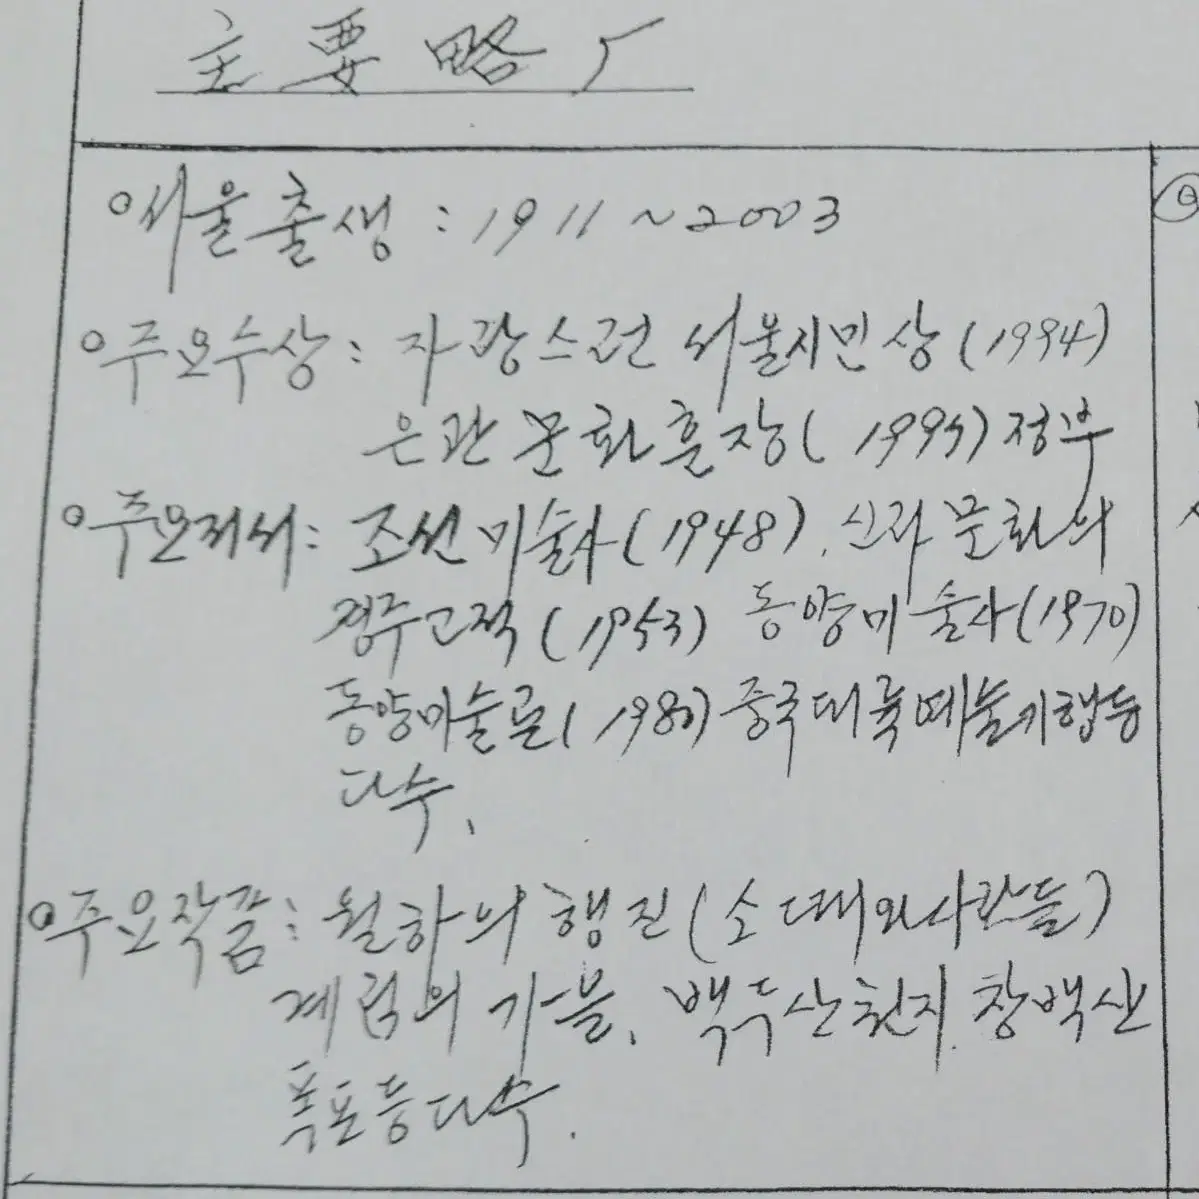 主要略
○서울출생 : 1911~2003
○주요수상 : 자랑스런 서울시민상(1994)
은관문화훈장(1995)정부
○주요저서 : 조선미술사(1948). 신라문화의
경주고적(1953) 동양미술사(1970)
동양미술론(1980)중국대륙예술기행등
다수.
○주요작품 : 월하의 행진(소떼와사람들)
계림의 가을, 백두산천지. 장백산
폭포등다수.